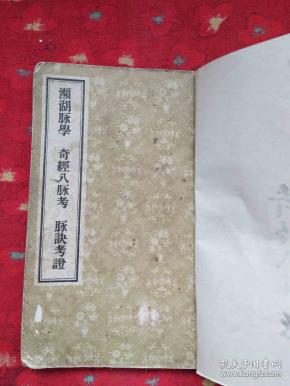 瀕湖脉學 奇經八脉考 脉訣考證
孔夫子旧书网